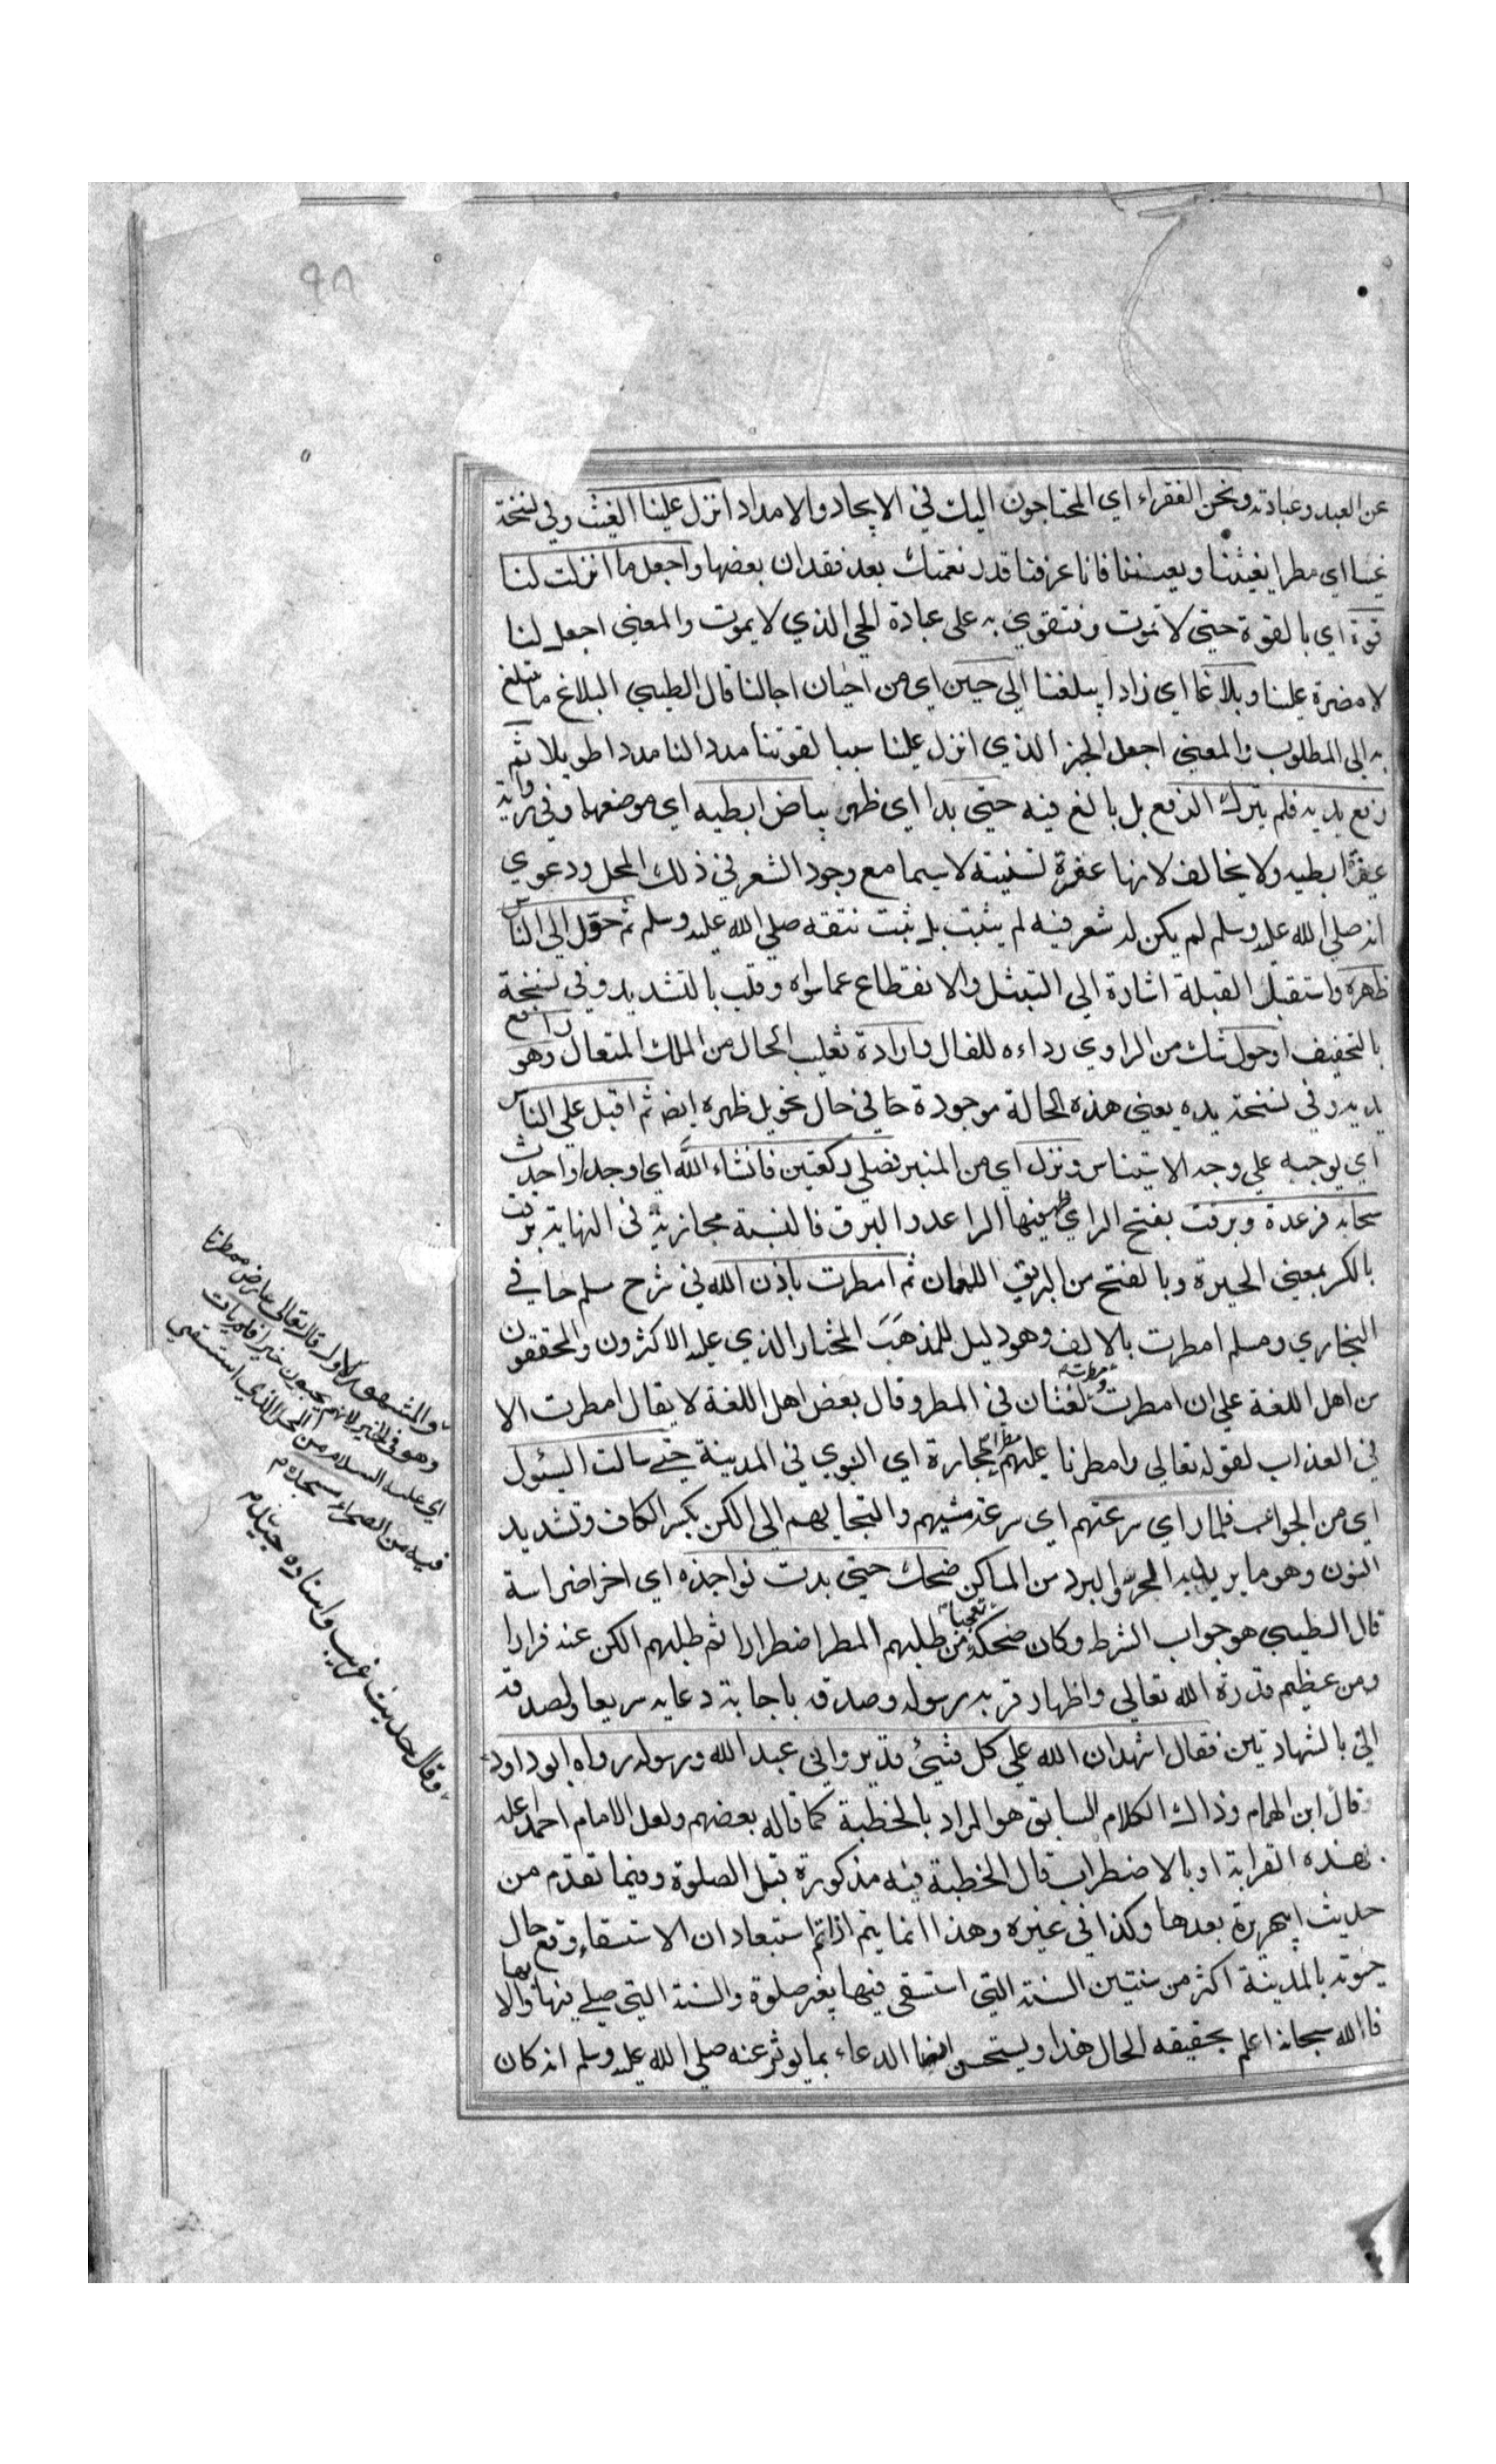 عن العبد وعبادته ونحن الفقراء اي المحتاجون اليك في الايجاد والامداد انزل علينا الغيث وفي نسخة
غيثا اي مطرا يغيثنا ويعيننا فانا عرفنا قدر نعمتك بعد فقدان بعضها واجعل ما انزلت لنا
قوة اي بالقوة حتي لا نموت ونتقوي به علي عبادة الحي الذي لا يموت والمعني اجعل لنا
لا مضرة علينا وبلاغا اي زادا يبلغنا الي حين اي من احيان اجالنا قال الطيبي البلاغ ما يتبلغ
به الي المطلوب والمعني اجعل الخير الذي انزل علينا سببا لقوتنا مددا لنا مددا طويلا ثم
رفع يديه فلم يترك الرفع بل بالغ فيه حتي بدا اي ظهر بياض ابطيه اي موضعهما وفي رواية
عفرة ابطيه ولا يخالف لانها عفرة نسبية لاسيما مع وجود الشعر في ذلك المحل ودعوي
انه صلي الله عليه وسلم لم يكن له شعر فيه لم يثبت بل ثبت نتفه صلي الله عليه وسلم ثم حوّل الي الناس
ظهره واستقبل القبلة اشارة الي التبتل والانقطاع عما سواه وقلب بالتشديد وفي نسخة
بالتخفيف او حول شك من الراوي رداءه للفال وارادة تقليب الحال من الملك المتعال وهو رافع
يديه وفي نسخة يده يعني هذه الحالة موجودة حا في حال تحويل ظهره ايضا ثم اقبل علي الناس
اي بوجهه علي وجه الاستيناس ونزل اي من المنبر فصلي ركعتين فانشاء اللّه اي اوجد واحدث
سحابه فرعدة وبرقت بفتح الراي ظهر فيها الراعد والبرق فالنسبة مجازية في النهاية برقت
بالكسر بمعني الحيرة وبالفتح من البريق اللمعان ثم امطرت باذن الله في شرح مسلم جا في
البخاري ومسلم امطرت بالالف وهو دليل للمذهب المختار الذي عليه الاكثرون والمحققون
من اهل اللغة علي ان امطرت ومطرت لغتان في المطر وقال بعض اهل اللغة لا يقال امطرت الا
في العذاب لقوله تعالي وامطرنا عليهم حجارة اي النبوي في المدينة حتي سالت السيول
اي من الجوانب فلما راي سرعتهم اي سرعة مشيهم والتجايهم الي الكن بكسر الكاف وتشديد
النون وهو ما يرد به الحر والبرد من المساكن ضحك حتي بدت نواجذه اي اخر اضراسه
قال الطيبي هو جواب الشرط وكان ضحكه تعجبا من طلبهم المطر اضطرارا ثم طلبهم الكن عنه فرارا
ومن عظيم قدرة الله تعالي واظهار قربه رسوله وصدقه باجابة دعايه سريعا ولصدقه
اتي بالشهادتين فقال اشهد ان الله علي كل شيئ قدير واني عبد الله ورسوله رواه ابو داود
وقال ابن الهمام وذاك الكلام السابق هو المراد بالخطبة كما قاله بعضهم ولعل الامام احمد اعله
بهذه الغرابة او بالاضطراب قال الخطبة فيه مذكورة قبل الصلوة وفيما تقدم من
حديث ابي هريرة بعدها وكذا في غيره وهذا انما يتم اذا تم استبعاد ان الاستسقاء وقع حال
حيوته بالمدينة اكثر من سنتين السنة التي استسقي فيها بغير صلوة والسنة التي صلي فيها والا
فالله سبحانه اعلم بحقيقه الحال هذا ويستحسن ايضا الدعاء بما يوثر عنه صلي الله عليه وسلم انه كان
والمشهور الاول قال تعالي عارض ممطرنا
وهو في الخير لانهم يحبون خيرا
اي عليه السلام من المحل الذي استسقي
فيه من الصحراء مسجده م
وقال حديث غريب واسناده جيد م